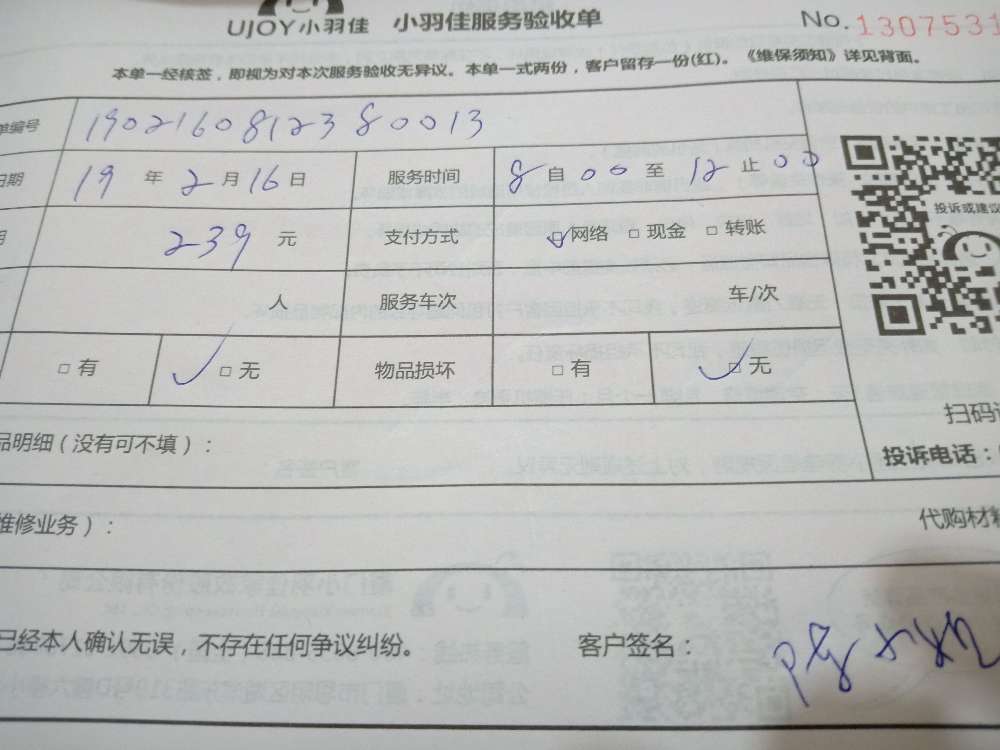 UJOY小羽佳 小羽佳服务验收单 No.1307531
本单一经核签，即视为对本次服务验收无异议。本单一式两份，客户留存一份(红)。《维保须知》详见背面。
单编号 190216081238 0013
日期 19 年 2 月 16 日 服务时间 8 自 00 至 12 止 00
239 元 支付方式 ☑网络 □现金 □转账
投诉或建议
人 服务车次 车/次
□有 ☑无 物品损坏 □有 ☑无
扫码
品明细（没有可不填）：
投诉电话：
维修业务）：
代购材料
已经本人确认无误，不存在任何争议纠纷。 客户签名：